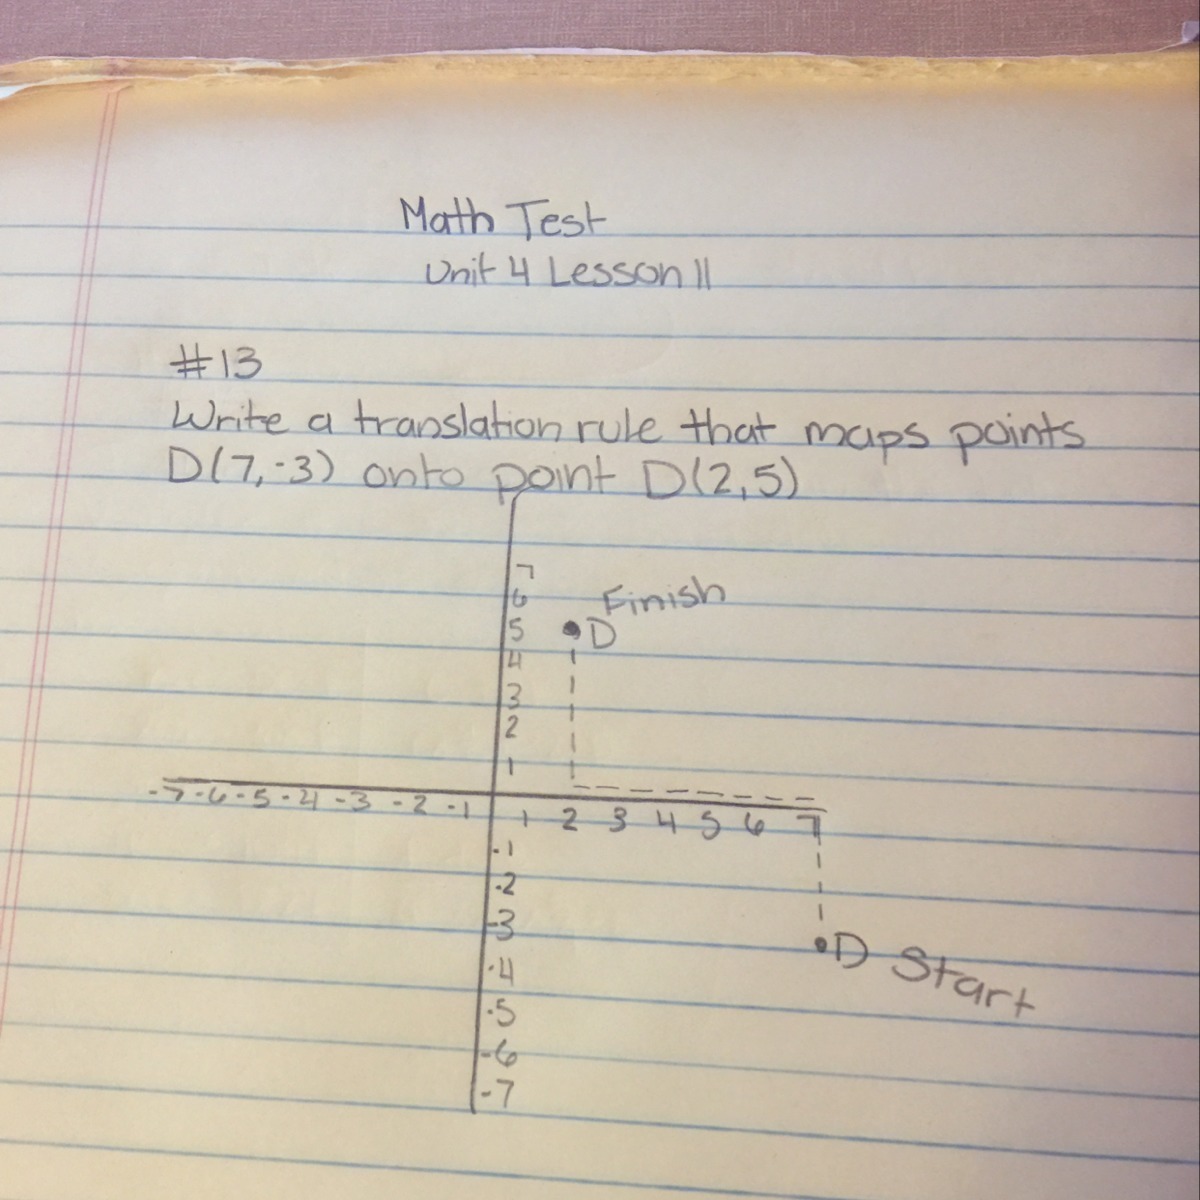 Math Test
Unit 4 Lesson 11
#13
Write a translation rule that maps points
D(7,-3) onto point D(2,5)
7
6
Finish
5
D
4
3
2
1
-7 -6 -5 -4 -3 -2 -1
1 2 3 4 5 6 7
-1
-2
-3
D Start
-4
-5
-6
-7